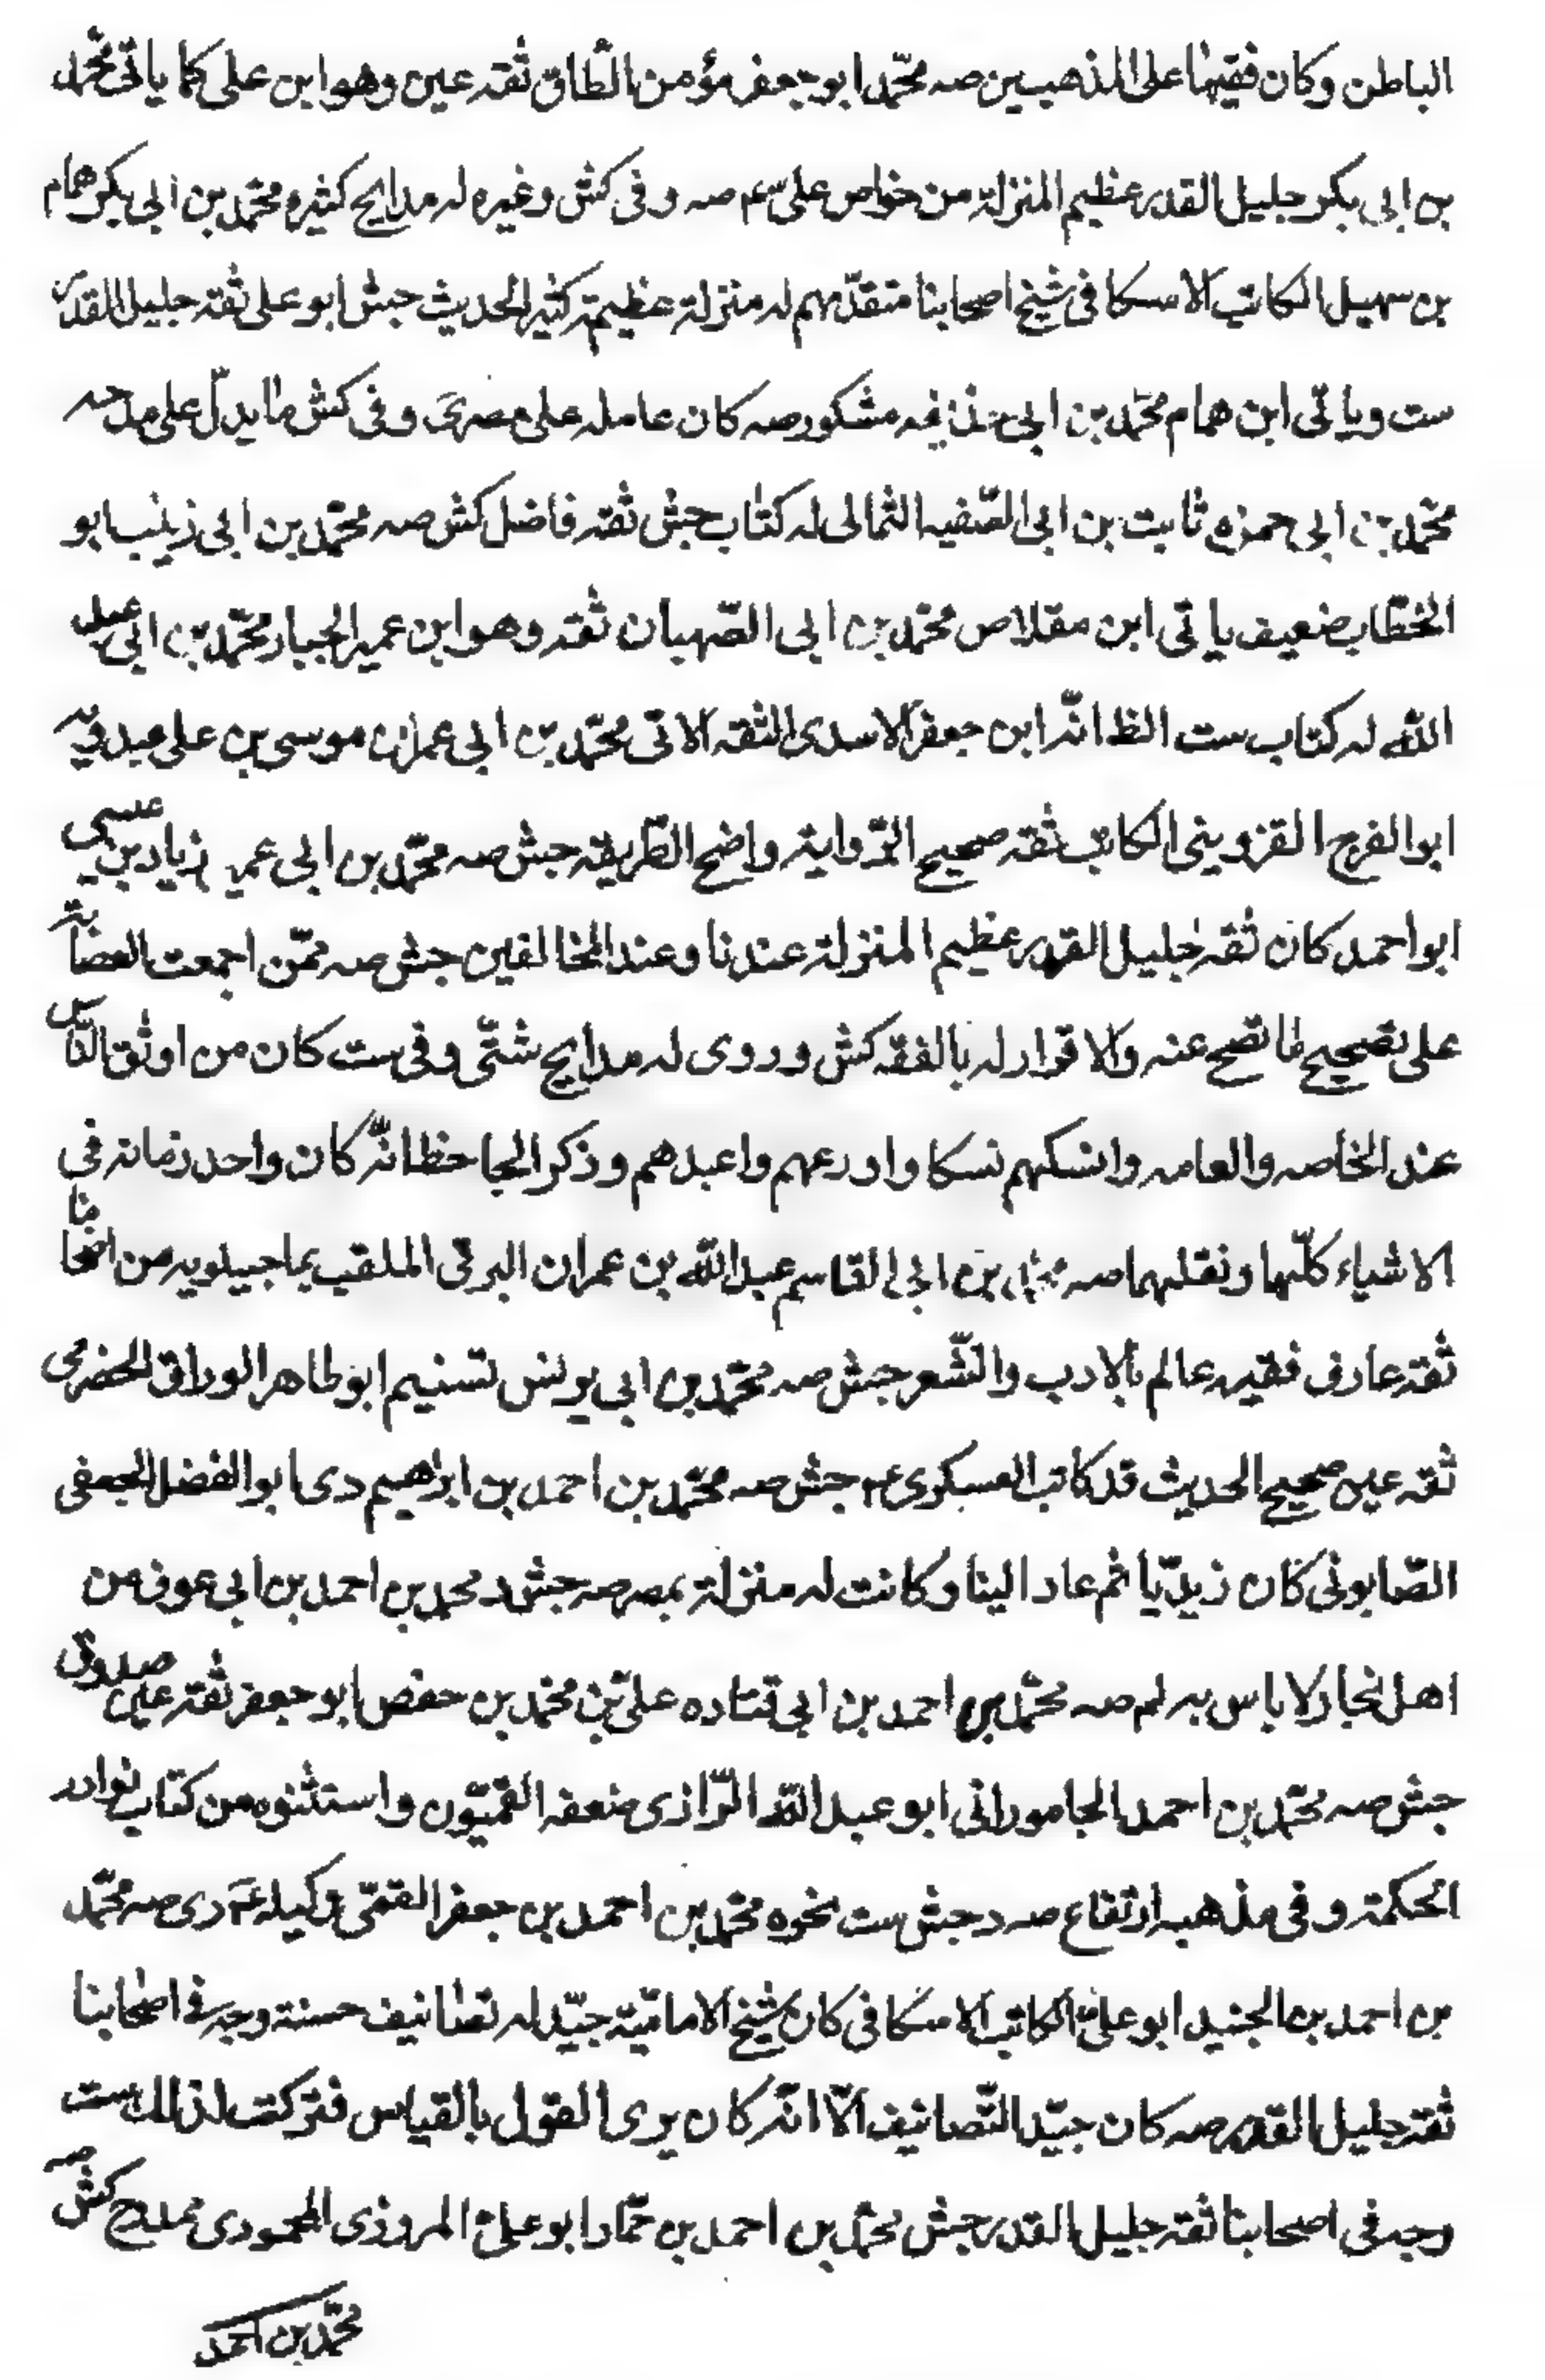 الباطن وكان فقيها على المذهبين صه محمّد ابو جعفر مؤمن الطّاق ثقه عين وهو ابن على كما ياتى محمّد
بن ابى بكر جليل القدر عظيم المنزلة من خواص على عم صه وفى كش وغيره له مدايح كثيره محمّد بن ابى بكر همام
بن سهيل الكاتب الاسكافى شيخ اصحابنا متقدّمهم له منزلة عظيمة كثير الحديث جش ابو على ثقة جليل القدر
ست وياتى ابن همام محمّد بن ابى حذيفه مشكور صه كان عامله على مصر ى وفى كش ما يدلّ على مدحه
محمّد بن ابى حمزه ثابت بن ابى الصّفيه الثمالى له كتاب جش ثقه فاضل كش صه محمّد بن ابى زينب ابو
الخطّاب ضعيف ياتى ابن مقلاص محمّد بن ابى الصّهبان ثقه وهو ابن عمير الجبار محمّد بن ابى عبد
اللّه له كتاب ست الظ انّه ابن جعفر الاسدى الثقه الاتى محمّد بن ابى عمران موسى بن على عبدويه
ابو الفرج القزوينى الكاتب ثقه صحيح الرّواية واضح الطّريقه جش صه محمّد بن ابى عمير زياد بن عيسى
ابو احمد كان ثقه جليل القدر عظيم المنزلة عندنا وعند المخالفين جش صه ممّن اجمعت العصابة
على تصحيح ما تصح عنه والاقرار له بالفقه كش وروى له مدايح شتّى وفى ست كان من اوثق النّاس
عند الخاصه والعامه وانسكهم نسكا واورعهم واعبدهم وذكر الجاحظ انّه كان واحد زمانه فى
الاشياء كلّها ونقلهما صه محمّد بن ابى القاسم عبد اللّه بن عمران البرقى الملقب بماجيلويه من اصحابنا
ثقة عارف فقيه عالم بالادب والشّعر جش صه محمّد بن ابى يونس تسنيم ابو طاهر الوراق الحضرمى
ثقه عين صحيح الحديث قد كاتب العسكرى عم جش صه محمّد بن احمد بن ابراهيم دى ابو الفضل الجعفى
الصّابونى كان زيديّا ثم عاد الينا وكانت له منزلة بمصر صه جش د محمد بن احمد بن ابى عوف من
اهل بخارا لا باس به لم صه محمّد بن احمد بن ابى قتاده علىّ بن محمّد بن حفص ابو جعفر ثقة عين صدوق
جش صه محمّد بن احمد الجامورانى ابو عبد اللّه الرّازى ضعفه القميّون واستثنوه من كتاب نوادر
الحكمة وفى مذهبه ارتفاع صه د جش ست نحوه محمّد بن احمد بن جعفر القمّى وكيله عم دى صه محمّد
بن احمد بن الجنيد ابو علىّ الكاتب الاسكافى كان شيخ الاماميّة جيّد له تصانيف حسنة وجه فى اصحابنا
ثقة جليل القدر صه كان جيّد التّصانيف الّا انّه كان يرى القول بالقياس فتركت لذلك ست
وجه فى اصحابنا ثقة جليل القدر جش محمّد بن احمد بن حمّاد ابو علىّ المروزى المحمودى ممدح كش صه
محمّد بن احمد